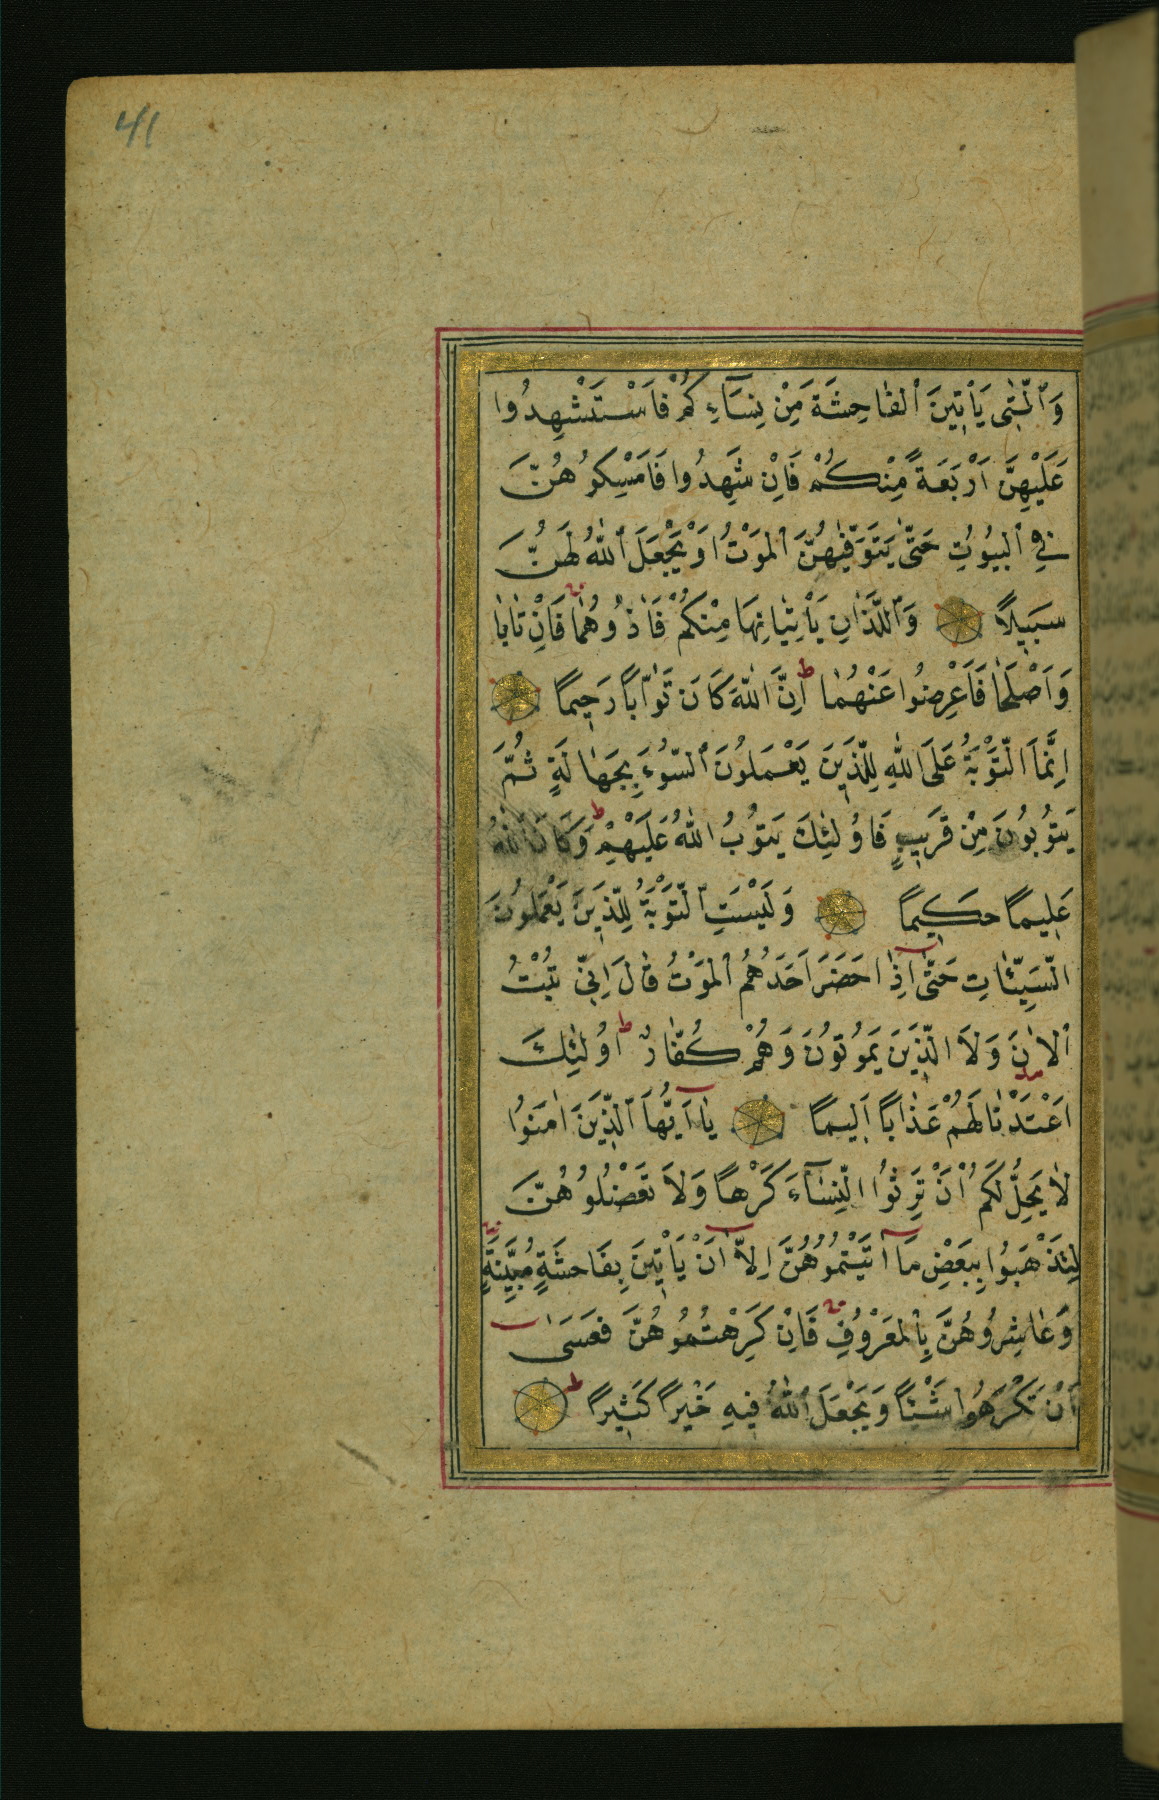 41
وَٱلّٰتٖى يَأْتٖينَ ٱلْفَاحِشَةَ مِنْ نِسَآءِكُمْ فَاسْتَشْهِدُوا
عَلَيْهِنَّ اَرْبَعَةً مِنْكُمْ فَاِنْ شَهِدُوا فَاَمْسِكُوهُنَّ
فِى ٱلْبُيُوتِ حَتّٰى يَتَوَفّٰيهُنَّ ٱلْمَوْتُ اَوْ يَجْعَلَ ٱللّٰهُ لَهُنَّ
سَبٖيلًا وَٱللَّذَانِ يَأْتِيَانِهَا مِنْكُمْ فَاٰذُوهُمَا فَاِنْ تَابَا
وَاَصْلَحَا فَاَعْرِضُوا عَنْهُمَا ط اِنَّ اللّٰهَ كَانَ تَوَّابًا رَحٖيمًا
اِنَّمَا التَّوْبَةُ عَلَى اللّٰهِ لِلَّذٖينَ يَعْمَلُونَ ٱلسُّوءَ بِجَهَالَةٍ ثُمَّ
يَتُوبُونَ مِنْ قَرٖيبٍ فَاُولٰئِكَ يَتُوبُ اللّٰهُ عَلَيْهِمْ ط وَكَانَ اللّٰهُ
عَلٖيمًا حَكٖيمًا وَلَيْسَتِ ٱلتَّوْبَةُ لِلَّذٖينَ يَعْمَلُونَ
السَّيِّئَاتِ حَتّٰى اِذَا حَضَرَ اَحَدَهُمُ ٱلْمَوْتُ قَالَ اِنّٖى تُبْتُ
ٱلْاٰنَ وَلَا الَّذٖينَ يَمُوتُونَ وَهُمْ كُفَّارٌ ط اُولٰئِكَ
اَعْتَدْنَا لَهُمْ عَذَابًا اَلٖيمًا يَا اَيُّهَا ٱلَّذٖينَ اٰمَنُوا
لَا يَحِلُّ لَكُمْ اَنْ تَرِثُوا النِّسَآءَ كَرْهًا وَلَا تَعْضُلُوهُنَّ
لِتَذْهَبُوا بِبَعْضِ مَا اٰتَيْتُمُوهُنَّ اِلَّا اَنْ يَأْتٖينَ بِفَاحِشَةٍ مُبَيِّنَةٍ
وَعَاشِرُوهُنَّ بِٱلْمَعْرُوفِ فَاِنْ كَرِهْتُمُوهُنَّ فَعَسٰى
اَنْ تَكْرَهُوا شَيْئًا وَيَجْعَلَ ٱللّٰهُ فٖيهِ خَيْرًا كَثٖيرًا ط